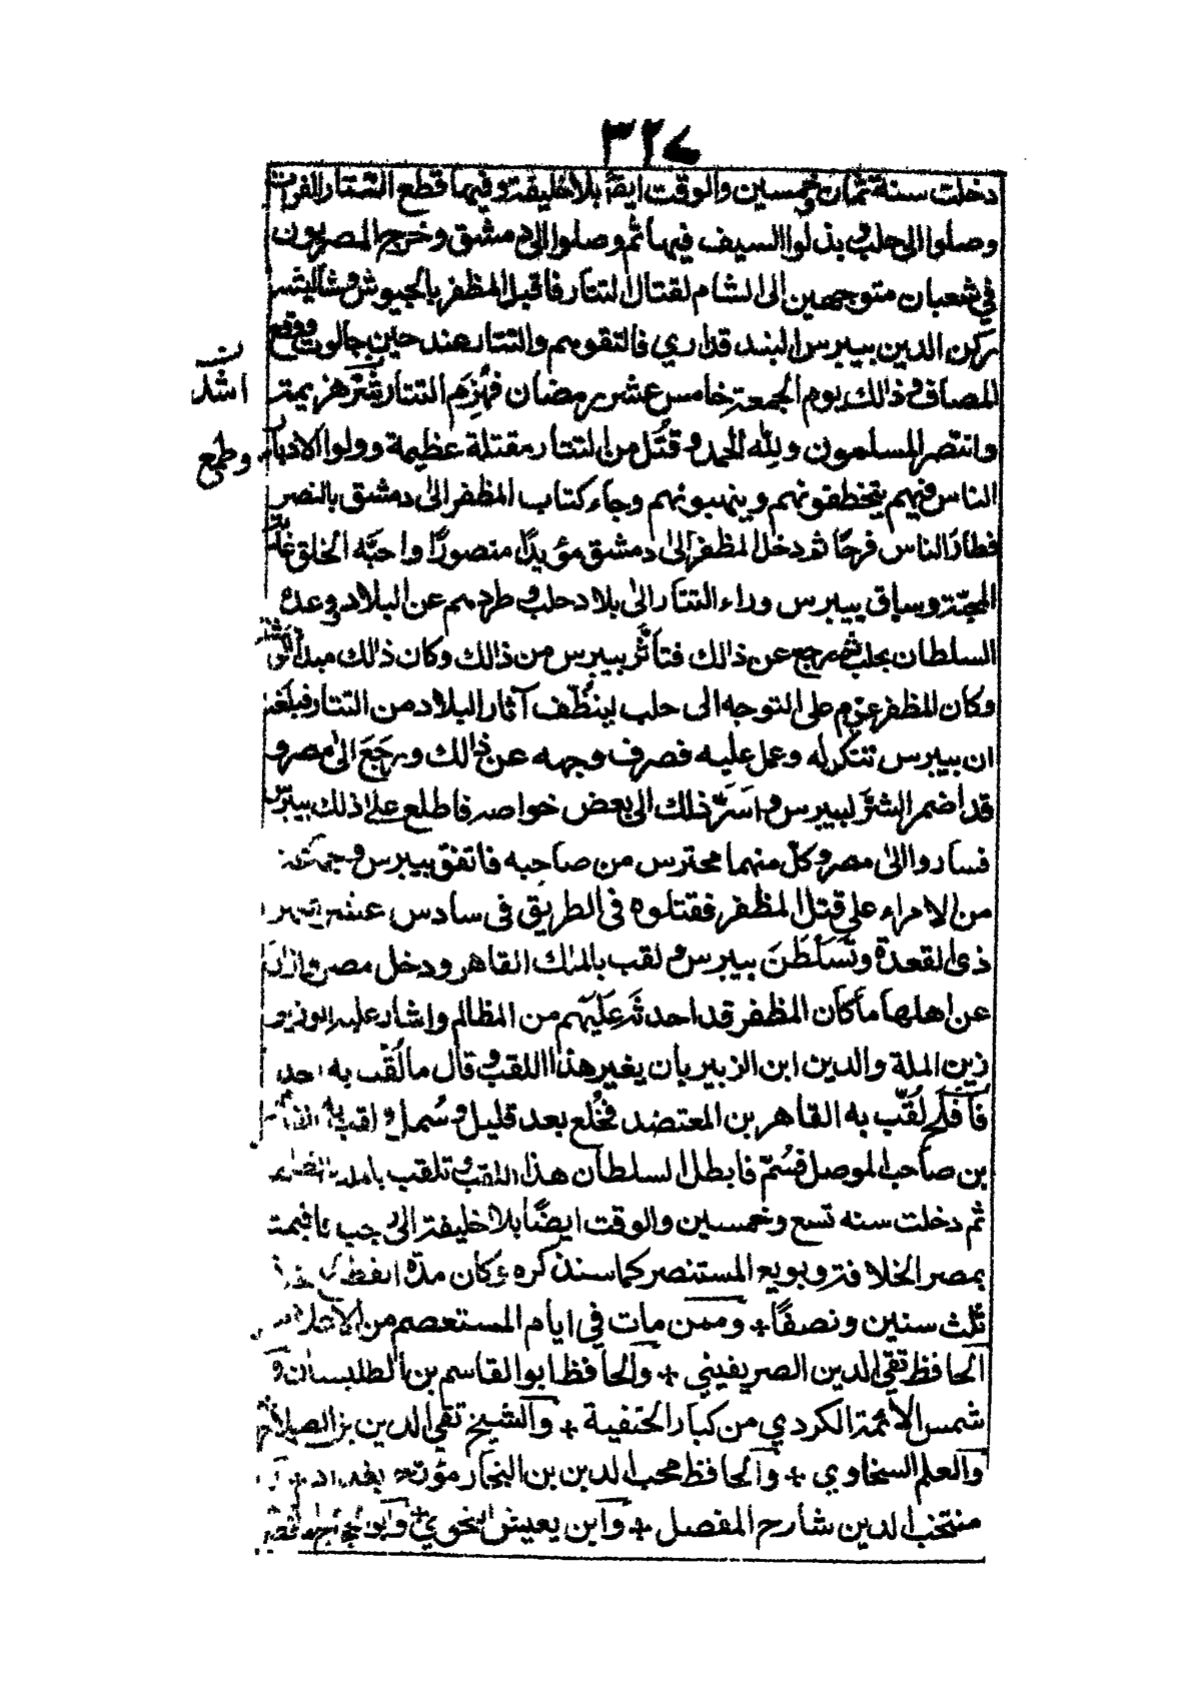 ٣٢٧
دخلت سنة ثمان وخمسين والوقت ايضا بلا خليفة وفيها قطع التتار الفرات
وصلوا الى حلب و بذلوا السيف فيها ثم وصلوا الى دمشق وخرج المصريون
في شعبان متوجهين الى الشام لقتال التتار فاقبل المظفر بالجيوش و شاليشه
ركن الدين بيبرس البند قداري فالتقوهم والتتار عند عين جالوت ووقع
المصاف وذالك يوم الجمعة خامس عشر رمضان فهُزِم التتار شر هزيمة
اشد
وانتصر المسلمون ولله الحمد و قُتُل من التتار مقتلة عظيمة وولوا الادبار
وطمع
الناس فيهم يتخطفونهم وينهبونهم وجاء كتاب المظفر الى دمشق بالنصر
فطار الناس فرحًا ثم دخل المظفر الى دمشق مؤيدًا منصورًا واحبَّه الخلق غاية
المحبّة وساق بيبرس وراء التتار الى بلاد حلب و طردهم عن البلاد و وعده
السلطان بحلب ثم رجع عن ذالك فتأثّر بيبرس من ذالك وكان ذالك مبدأ
وكان المظفر عزم على التوجه الى حلب لينظّف آثار البلاد من التتار فبلغه
ان بيبرس تتنكر له وعمل عليه فصرف وجهه عن ذالك ورجَعَ الى مصر و
قد اضمر الشرّ لبيبرس و اسَرّ ذلك الى بعض خواصه فاطلع على ذلك بيبرس
فساروا الى مصر و كلّ منهما محترس من صاحبه فاتفق بيبرس و جماعة
من الامراء على قتل المظفر فقتلوه فى الطريق فى سادس عشر شهر
ذى القعدة وتَسَلطَنَ بيبرس و لقب بالملك القاهر ودخل مصر وازال
عن اهلها ما كان المظفر قد احدثه عَلَيهم من المظالم واشار عليه الوزير
زين الملة والدين ابن الزبير بان يغير هذا اللقب و قال ما لُقّب به احد
فأفلح لُقّب به القاهر بن المعتضد فخُلع بعد قليل و سُمل و لقب به القاهر
بن صاحب الموصل فسُمّ فابطل السلطان هذا اللقب و تلقب بالملك الظاهر
ثم دخلت سنه تسع وخمسين والوقت ايضًا بلا خليفة الى رجب فاقيمت
بمصر الخلافة و بويع المستنصر كما سنذكره وكان مدة انقطاع
ثلث سنين ونصفًا + وممن مات في ايام المستعصم من الاعلام
الحافظ تقي الدين الصريفيني + والحافظ ابو القاسم بن الطلبسان و
شمس الأئمة الكردي من كبار الحنفية + والشيخ تقي الدين بن الصلاح
والعلم السخاوي + والحافظ محب الدين بن النجار مؤرخ بغداد +
منتخب الدين شارح المفصل + وابن يعيش النحوي +